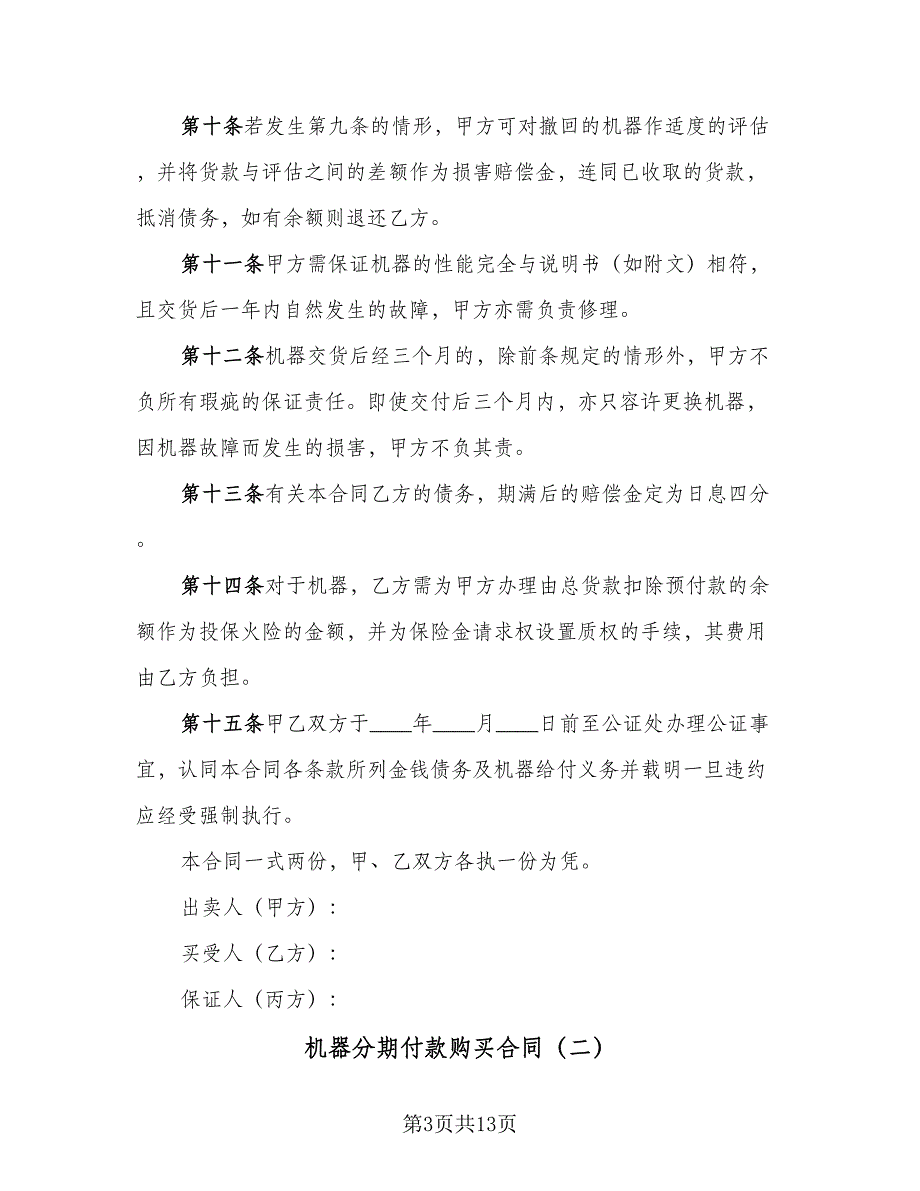 第十条若发生第九条的情形，甲方可对撤回的机器作适度的评估
，并将货款与评估之间的差额作为损害赔偿金，连同已收取的货款，
抵消债务，如有余额则退还乙方。
第十一条甲方需保证机器的性能完全与说明书（如附文）相符，
且交货后一年内自然发生的故障，甲方亦需负责修理。
第十二条机器交货后经三个月的，除前条规定的情形外，甲方不
负所有瑕疵的保证责任。即使交付后三个月内，亦只容许更换机器，
因机器故障而发生的损害，甲方不负其责。
第十三条有关本合同乙方的债务，期满后的赔偿金定为日息四分
。
第十四条对于机器，乙方需为甲方办理由总货款扣除预付款的余
额作为投保火险的金额，并为保险金请求权设置质权的手续，其费用
由乙方负担。
第十五条甲乙双方于____年____月____日前至公证处办理公证事
宜，认同本合同各条款所列金钱债务及机器给付义务并载明一旦违约
应经受强制执行。
本合同一式两份，甲、乙双方各执一份为凭。
出卖人（甲方）：
买受人（乙方）：
保证人（丙方）：
机器分期付款购买合同（二）
第3页共13页